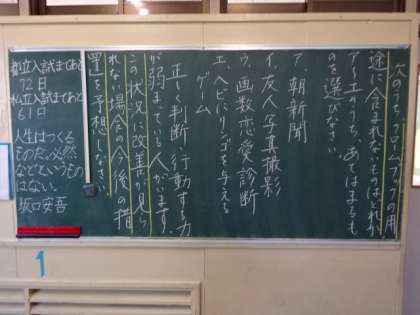 次のうち、クロームブックの用
途に含まれないものはどれか。
ア〜エのうち、あてはまるも
のを選びなさい。
ア、朝新聞
イ、友人写真撮影
ウ、画数恋愛診断
エ、ヘビにリンゴを与える
ゲーム
正しく判断・行動する力
が弱まている人がいます。
この状況に改善が見ら
れない場合の今後の措
置を予想しなさい。
都立入試まであと
72日
私立入試まであと
61日
人生はつくる
ものだ。必然
などというもの
はない。
坂口安吾
1